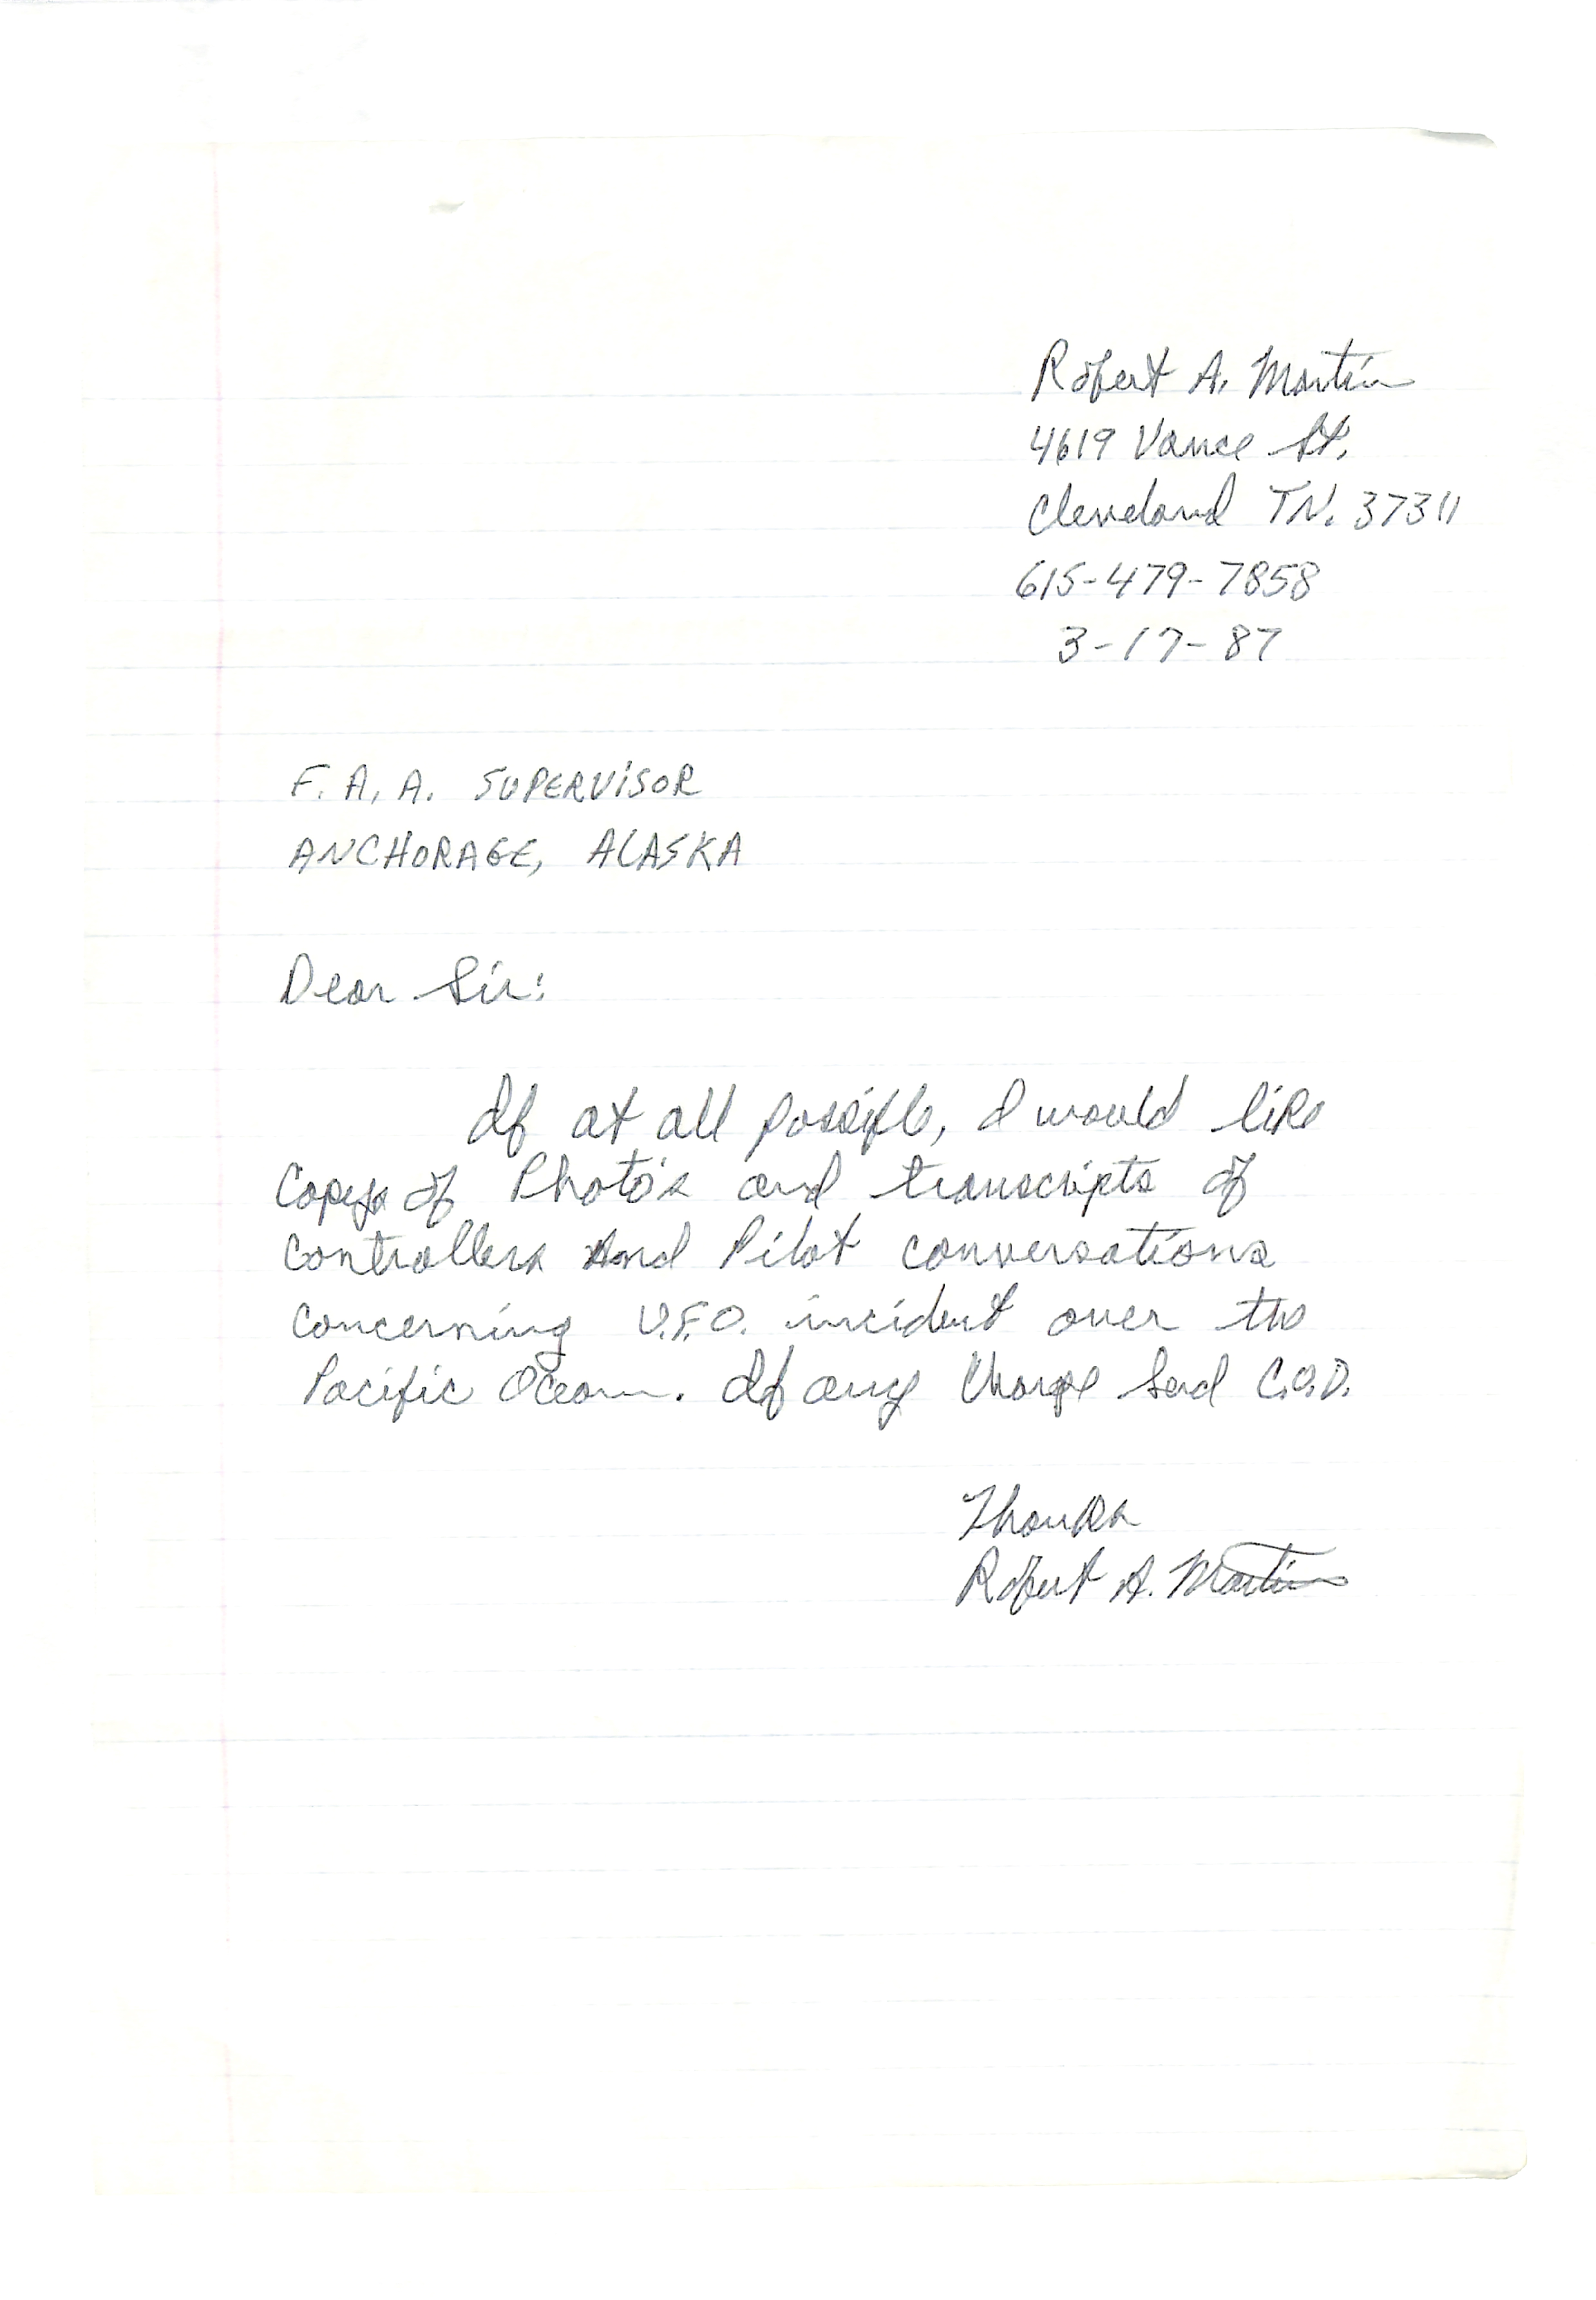 Robert A. Martin
4619 Vance St.
Cleveland TN. 37311
615-479-7858
3-17-87
F. A. A. SUPERVISOR
ANCHORAGE, ALASKA
Dear Sir:
If at all possible, I would like
Copys of Photo's and transcripts of
Controllers And Pilot conversations
Concerning U.F.O. incident over the
Pacific Ocean. If any Charge Send C.O.D.
Thanks
Robert A. Martin